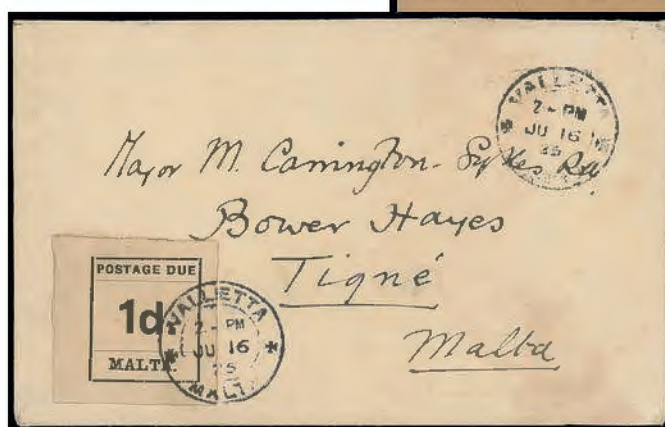 VALLETTA
2 - PM
JU 16
25
Major M. Carrington-Sykes RA
Bower Hayes
Tigné
Malta
POSTAGE DUE
1d.
MALTA.
VALLETTA
2 - PM
JU 16
25
MALTA